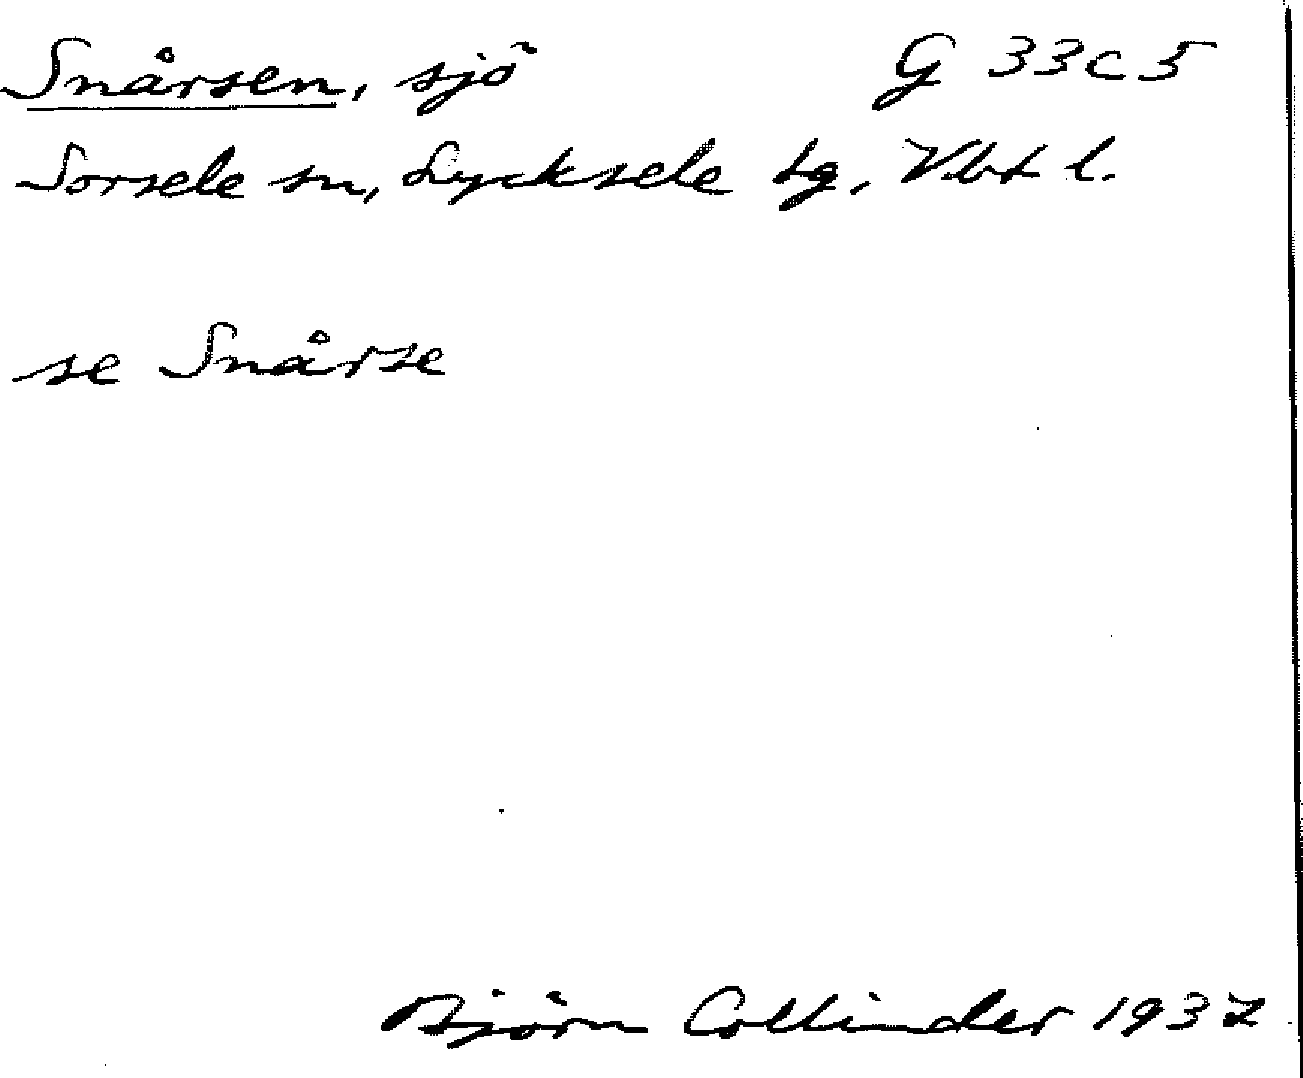 Snårsen, sjö G 33C5
Sorsele sn, Lycksele tg, Vbt l.
se Snårse
Björn Collinder 1937